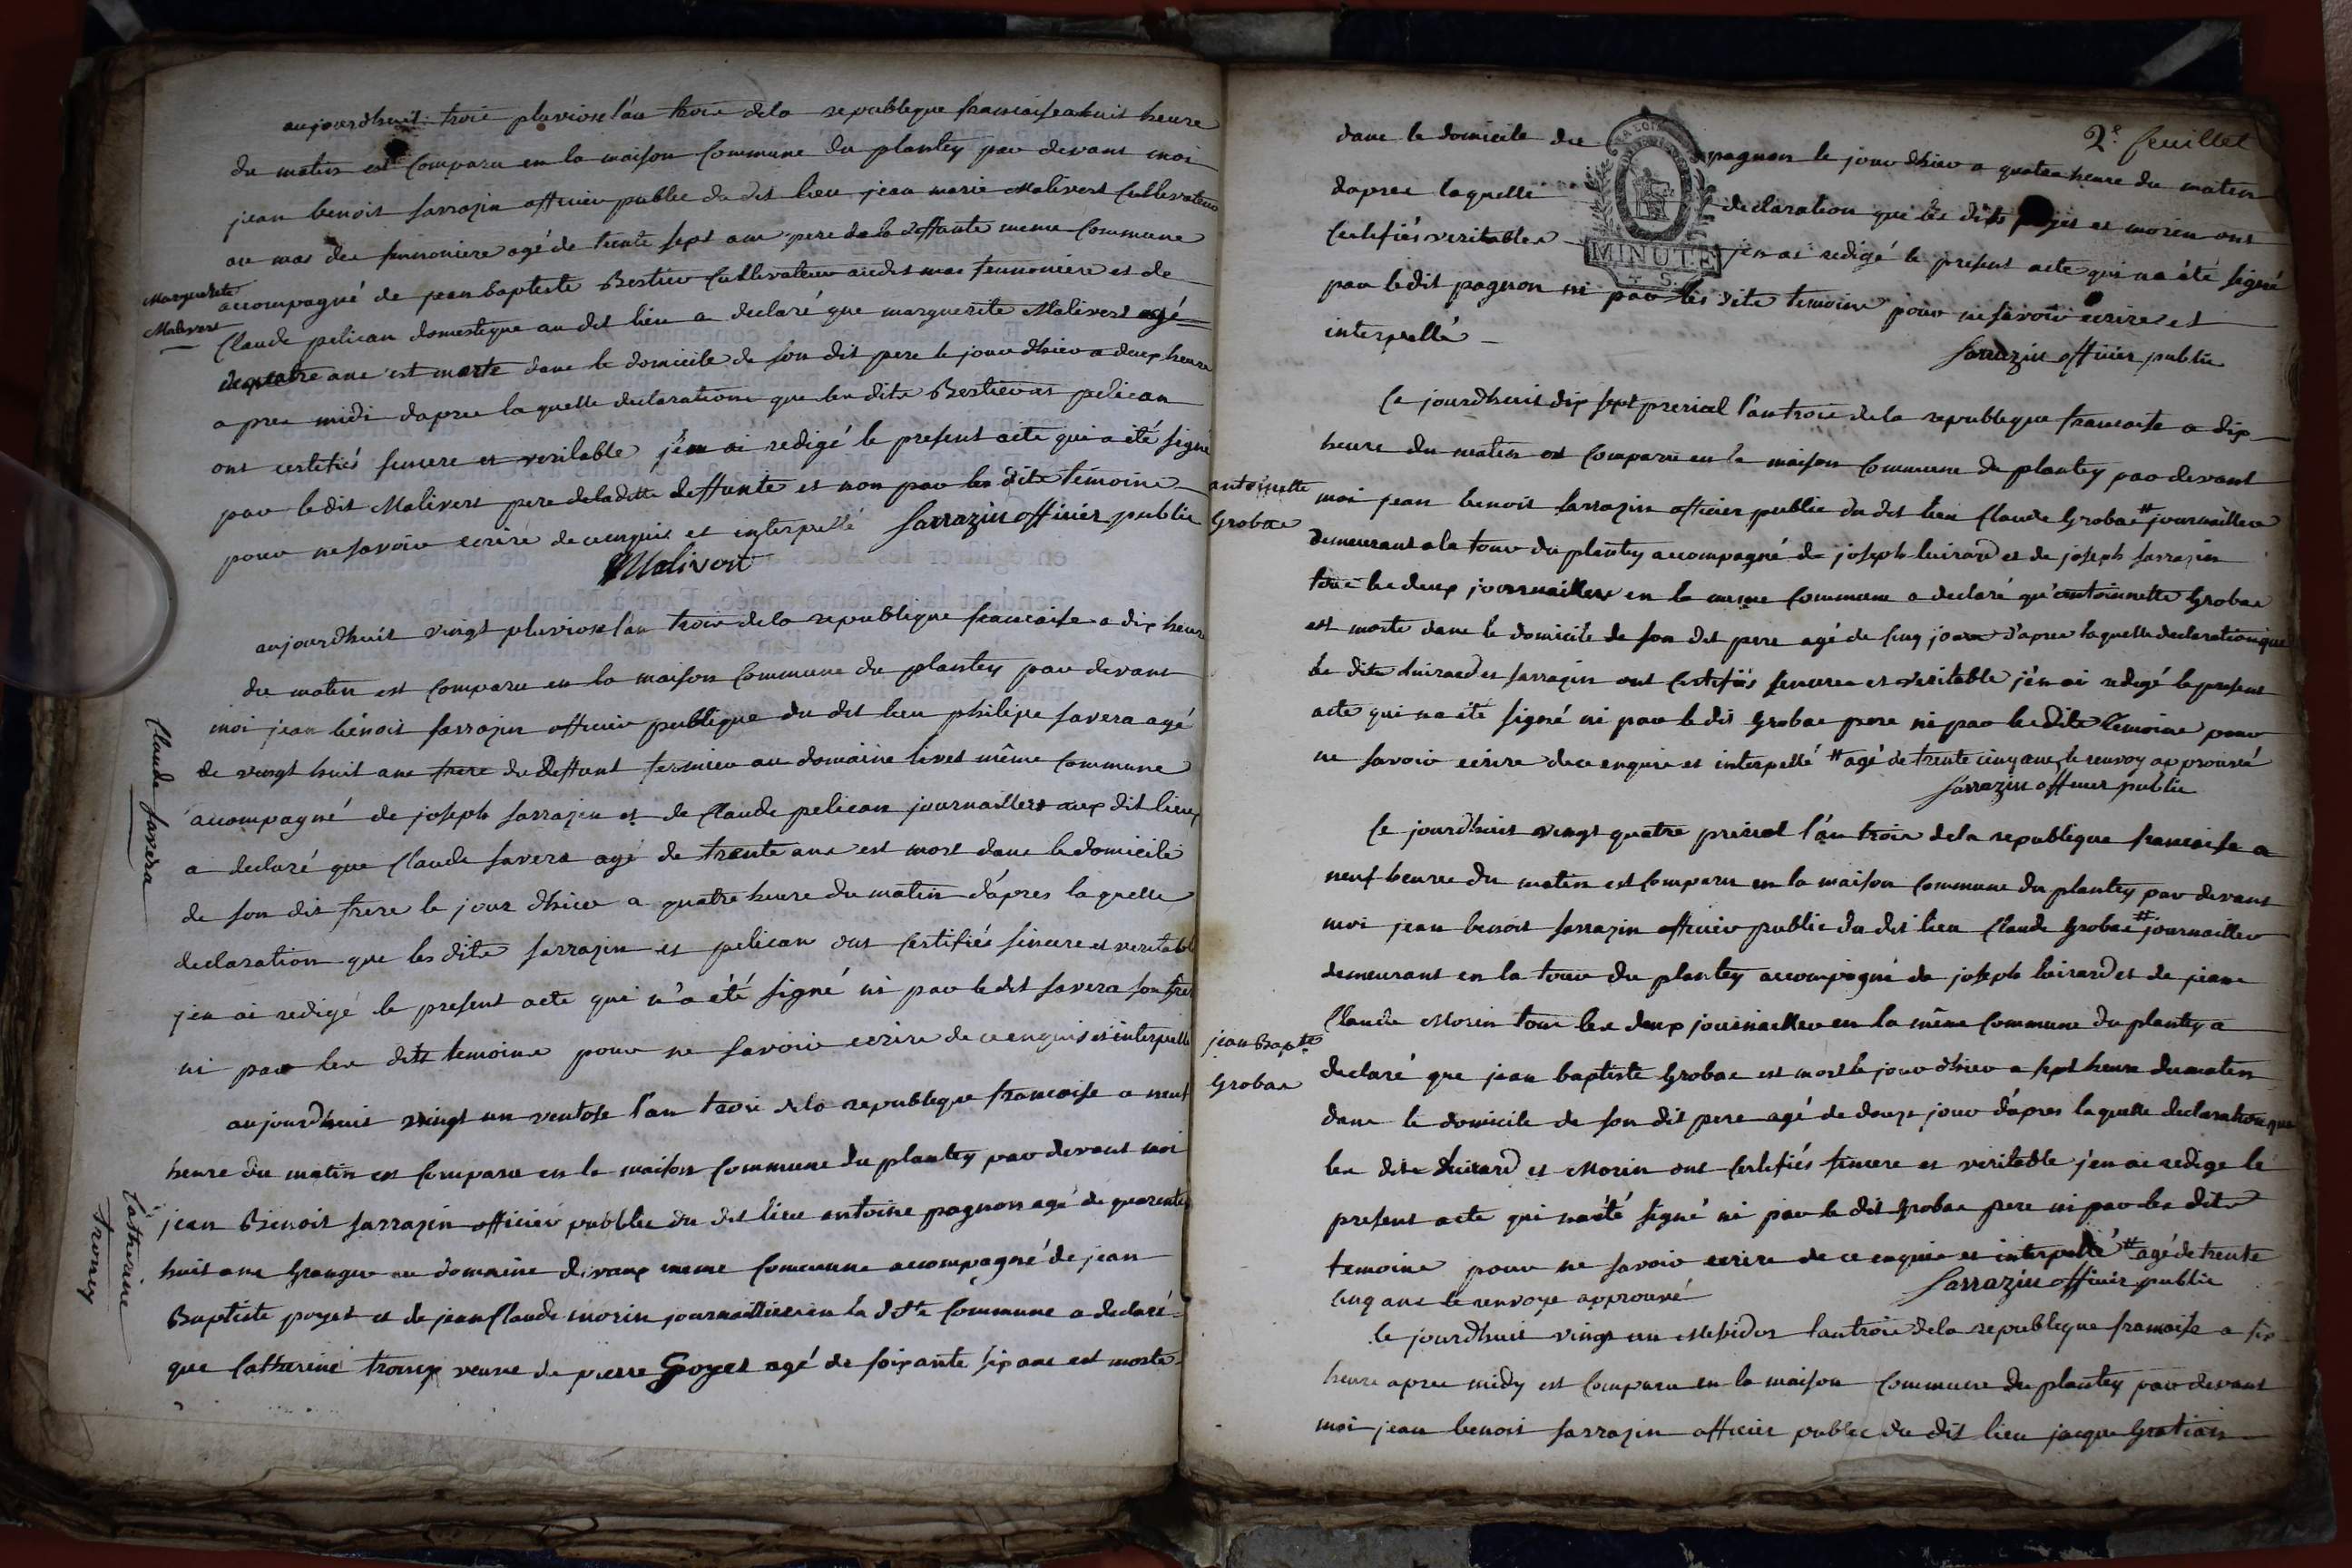 aujourdhuit trois pluviose l'an trois dela republeque francaise a huit heure
du matin est Comparu en la maison Commune du plantey par devant moi
jean benoit sarrazin officier public du dit lieu jean marie Malivert Cultivateur
au mas des agé de trente sept ans pere de la deffunte meme Commune
Marguerite
Malivert
accompagné de jean baptiste Bertier Cultivateur audit mas et de
Claude pelican domestique au dit lieu a declaré que marguerite Malivert agé
de quatre ans est morte dans le domicile de son dit pere le jour d'hier a deux heure
apres midi dapres la quelle declaration que les dits Bertier et pelican
ont certifiés sincere et veritable j'en ai redigé le present acte qui a été signé
par ledit Malivert pere de laditte deffunte et non par les dits temoins
pour ne savoir ecrire de ce enquis et interpellé Sarrazin officier public
Malivert
aujourdhuit vingt pluviose l'an trois dela republique francaise a dix heure
du matin est Comparu en la maison Commune du plantey par devant
moi jean benoit sarrazin officier publique du dit lieu philipe favera agé
de vingt huit ans frere du deffunt fermier au domaine livet même Commune
accompagné de joseph sarrazin et de Claude pelican journaillers aux dit lieux
Claude favera
a declaré que Claude favera agé de trente ans est mort dans le domicile
de son dit frere le jour d'hier a quatre heure du matin d'apres la quelle
declaration que les dits sarrazin et pelican ont certifiés sincere et veritable
j'en ai redigé le present acte qui n'a été signé ni par ledit favera son frere
ni par les dits temoins pour ne savoir ecrire de ce enquis et interpellé
aujourd'huit vingt un ventose l'an trois dela republeque francoise a neuf
heure du matin est Comparu en la maison Commune du plantey par devant moi
jean Benoit sarrazin officier publlic du dit lieu antoine pagnon agé de quarente
huit ans Granger au domaine meme Commune accompagné de jean
Catherine
troncy
Baptiste poyet et de jean Claude morin journaillier en la dite Commune a declaré
que Catherine veuve de pierre Goyet agé de soixante six ans est morte
2e. feuillet
dans le domicile du pagnon le jour d'hier a quatre heure du matin
dapres laquelle declaration que les dits poyet et morin ont
certifiés veritables j'en ai redigé le present acte qui na été signé
MINUTE
par ledit pagnon ni par les dits temoins pour ne savoir ecrire et
interpellé
Sarrazin officier public
Ce jourdhuit dix sept prerial l'an trois de la republique francaise a dix
heure du matin est Comparu en la maison Commune du plantey par devant
antoinette
Grobas
moi jean benoit sarrazin officier public du dit lieu Claude Grobas # journaillier
demeurant a la tour du plantey accompagné de joseph luirard et de joseph sarrazin
tous les deux journailler en la meme Commune a declaré qu'antoinette Grobas
est morte dans le domicile de son dit pere agé de cinq jours d'apres laquelle declaration que
les dits luirard et sarrazin ont certifiés sincere et veritable j'en ai redigé le present
acte qui na été signé ni par le dit Grobas pere ni par les dits temoins pour
ne savoir ecrire de ce enquis et interpellé # agé de trente cinq ans le renvoy approuvé
Sarrazin officier public
Ce jourd'huit vingt quatre prerial l'an trois dela republique francaise a
neuf heures du matin est Comparu en la maison Commune du plantey par devant
moi jean benoit sarrazin officier public du dit lieu Claude Grobas # journaillier
demeurant en la tour du plantey accompagné de joseph luirard et de jean
Claude Morin tous les deux journaillier en la même Commune du plantey a
jean Bapte
Grobas
declaré que jean baptiste Grobas est mort le jour d'hier a sept heure du matin
dans le domicile de son dit pere agé de douze jour d'apres laquelle declaration que
les dits luirard et Morin ont certifiés sincere et veritable j'en ai redigé le
present acte qui na été signé ni par le dit Grobas pere ni par les dits
temoins pour ne savoir ecrire de ce enquis et interpellé # agé de trente
cinq ans le renvoye approuvé Sarrazin officier public
le jourdhuit vingt un Messidor l'an trois dela republeque francoise a six
heure apres midy est Comparu en la maison Commune du plantey par devant
moi jean benoit sarrazin officier public du dit lieu jacque Gratian